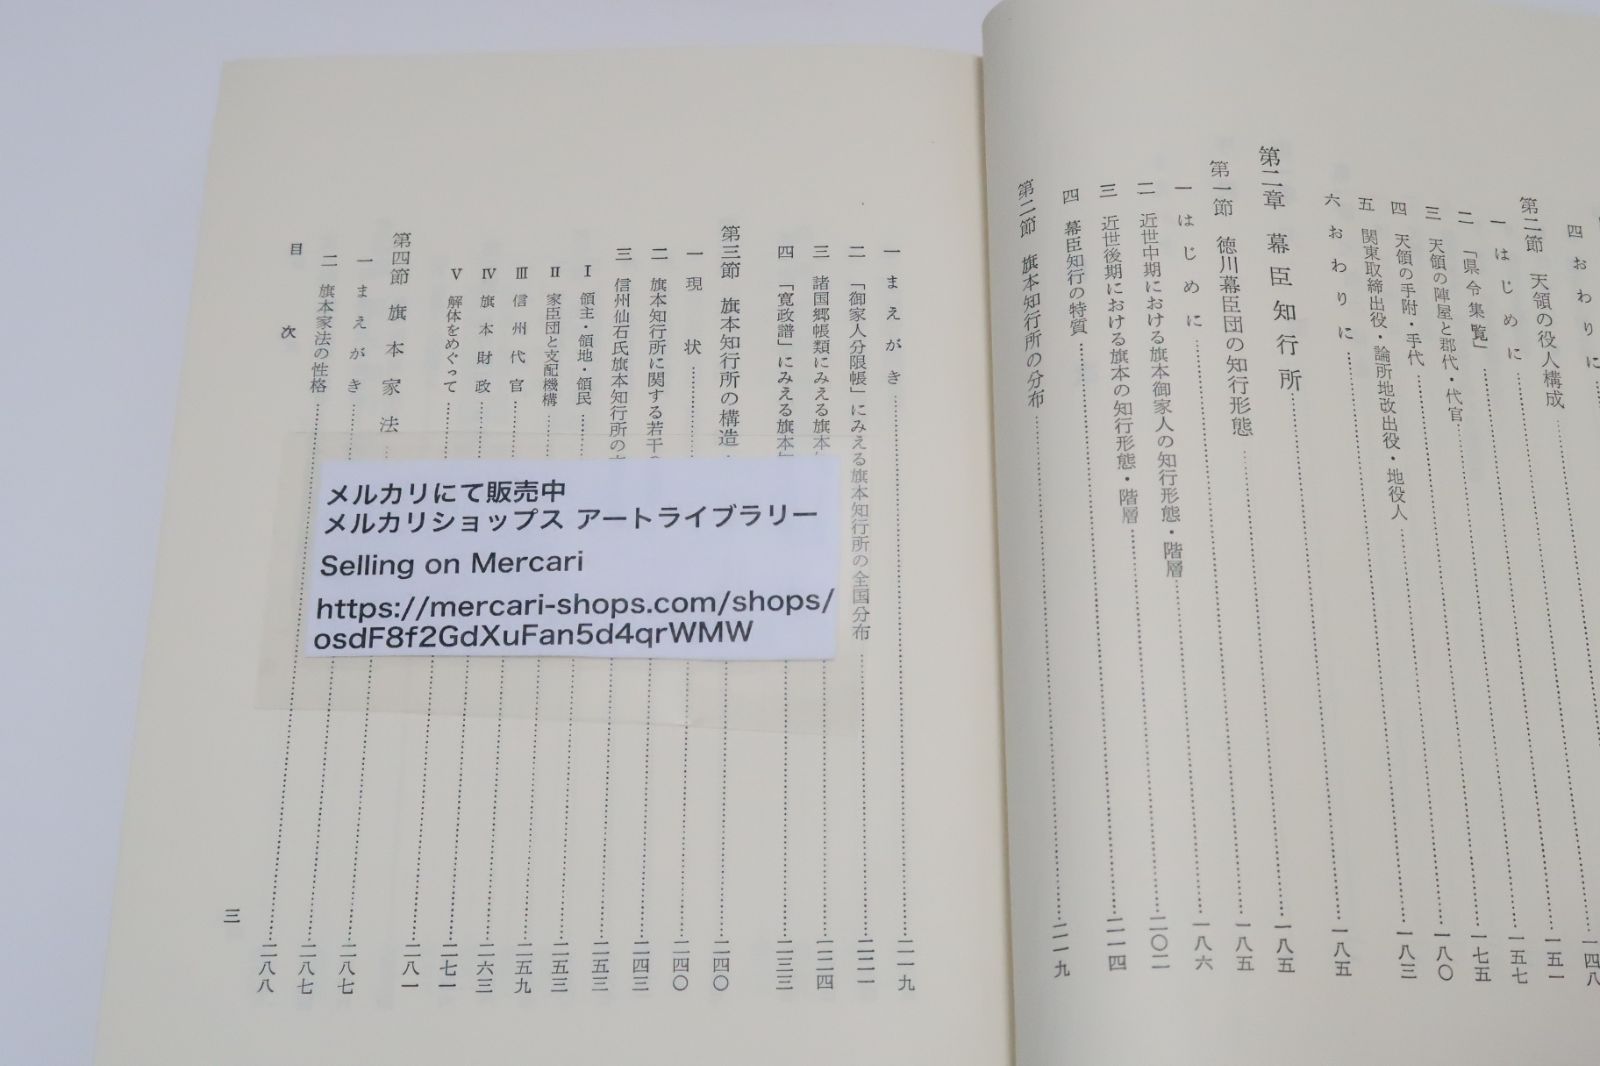 四 おわりに
第二節 天領の役人構成
一 はじめに……一四八
二 「県令集覧」……一五一
三 天領の陣屋と郡代・代官……一五七
四 天領の手附・手代……一七五
五 関東取締出役・論所地改出役・地役人……一八〇
六 おわりに……一八三
第二章 幕臣知行所……一八五
第一節 徳川幕臣団の知行形態……一八五
一 はじめに……一八五
二 近世中期における旗本御家人の知行形態・階層……一八六
三 近世後期における旗本の知行形態・階層……二〇二
四 幕臣知行の特質……二一四
第二節 旗本知行所の分布……二一九
一 まえがき……二一九
二 「御家人分限帳」にみえる旗本知行所の全国分布……二二一
三 諸国郷帳類にみえる旗本……二二四
四 「寛政譜」にみえる旗本……二三三
第三節 旗本知行所の構造……二四〇
一 現状……二四〇
二 旗本知行所に関する若干の……二四三
三 信州仙石氏旗本知行所の……二五三
Ⅰ 領主・領地・領民……二五三
Ⅱ 家臣団と支配機構……二五九
Ⅲ 信州代官……二六三
Ⅳ 旗本財政……二七一
Ⅴ 解体をめぐって……二八一
第四節 旗本家法……二八七
一 まえがき……二八七
二 旗本家法の性格……二八八
目次
三
メルカリにて販売中
メルカリショップス アートライブラリー
Selling on Mercari
https://mercari-shops.com/shops/
osdF8f2GdXuFan5d4qrWMW